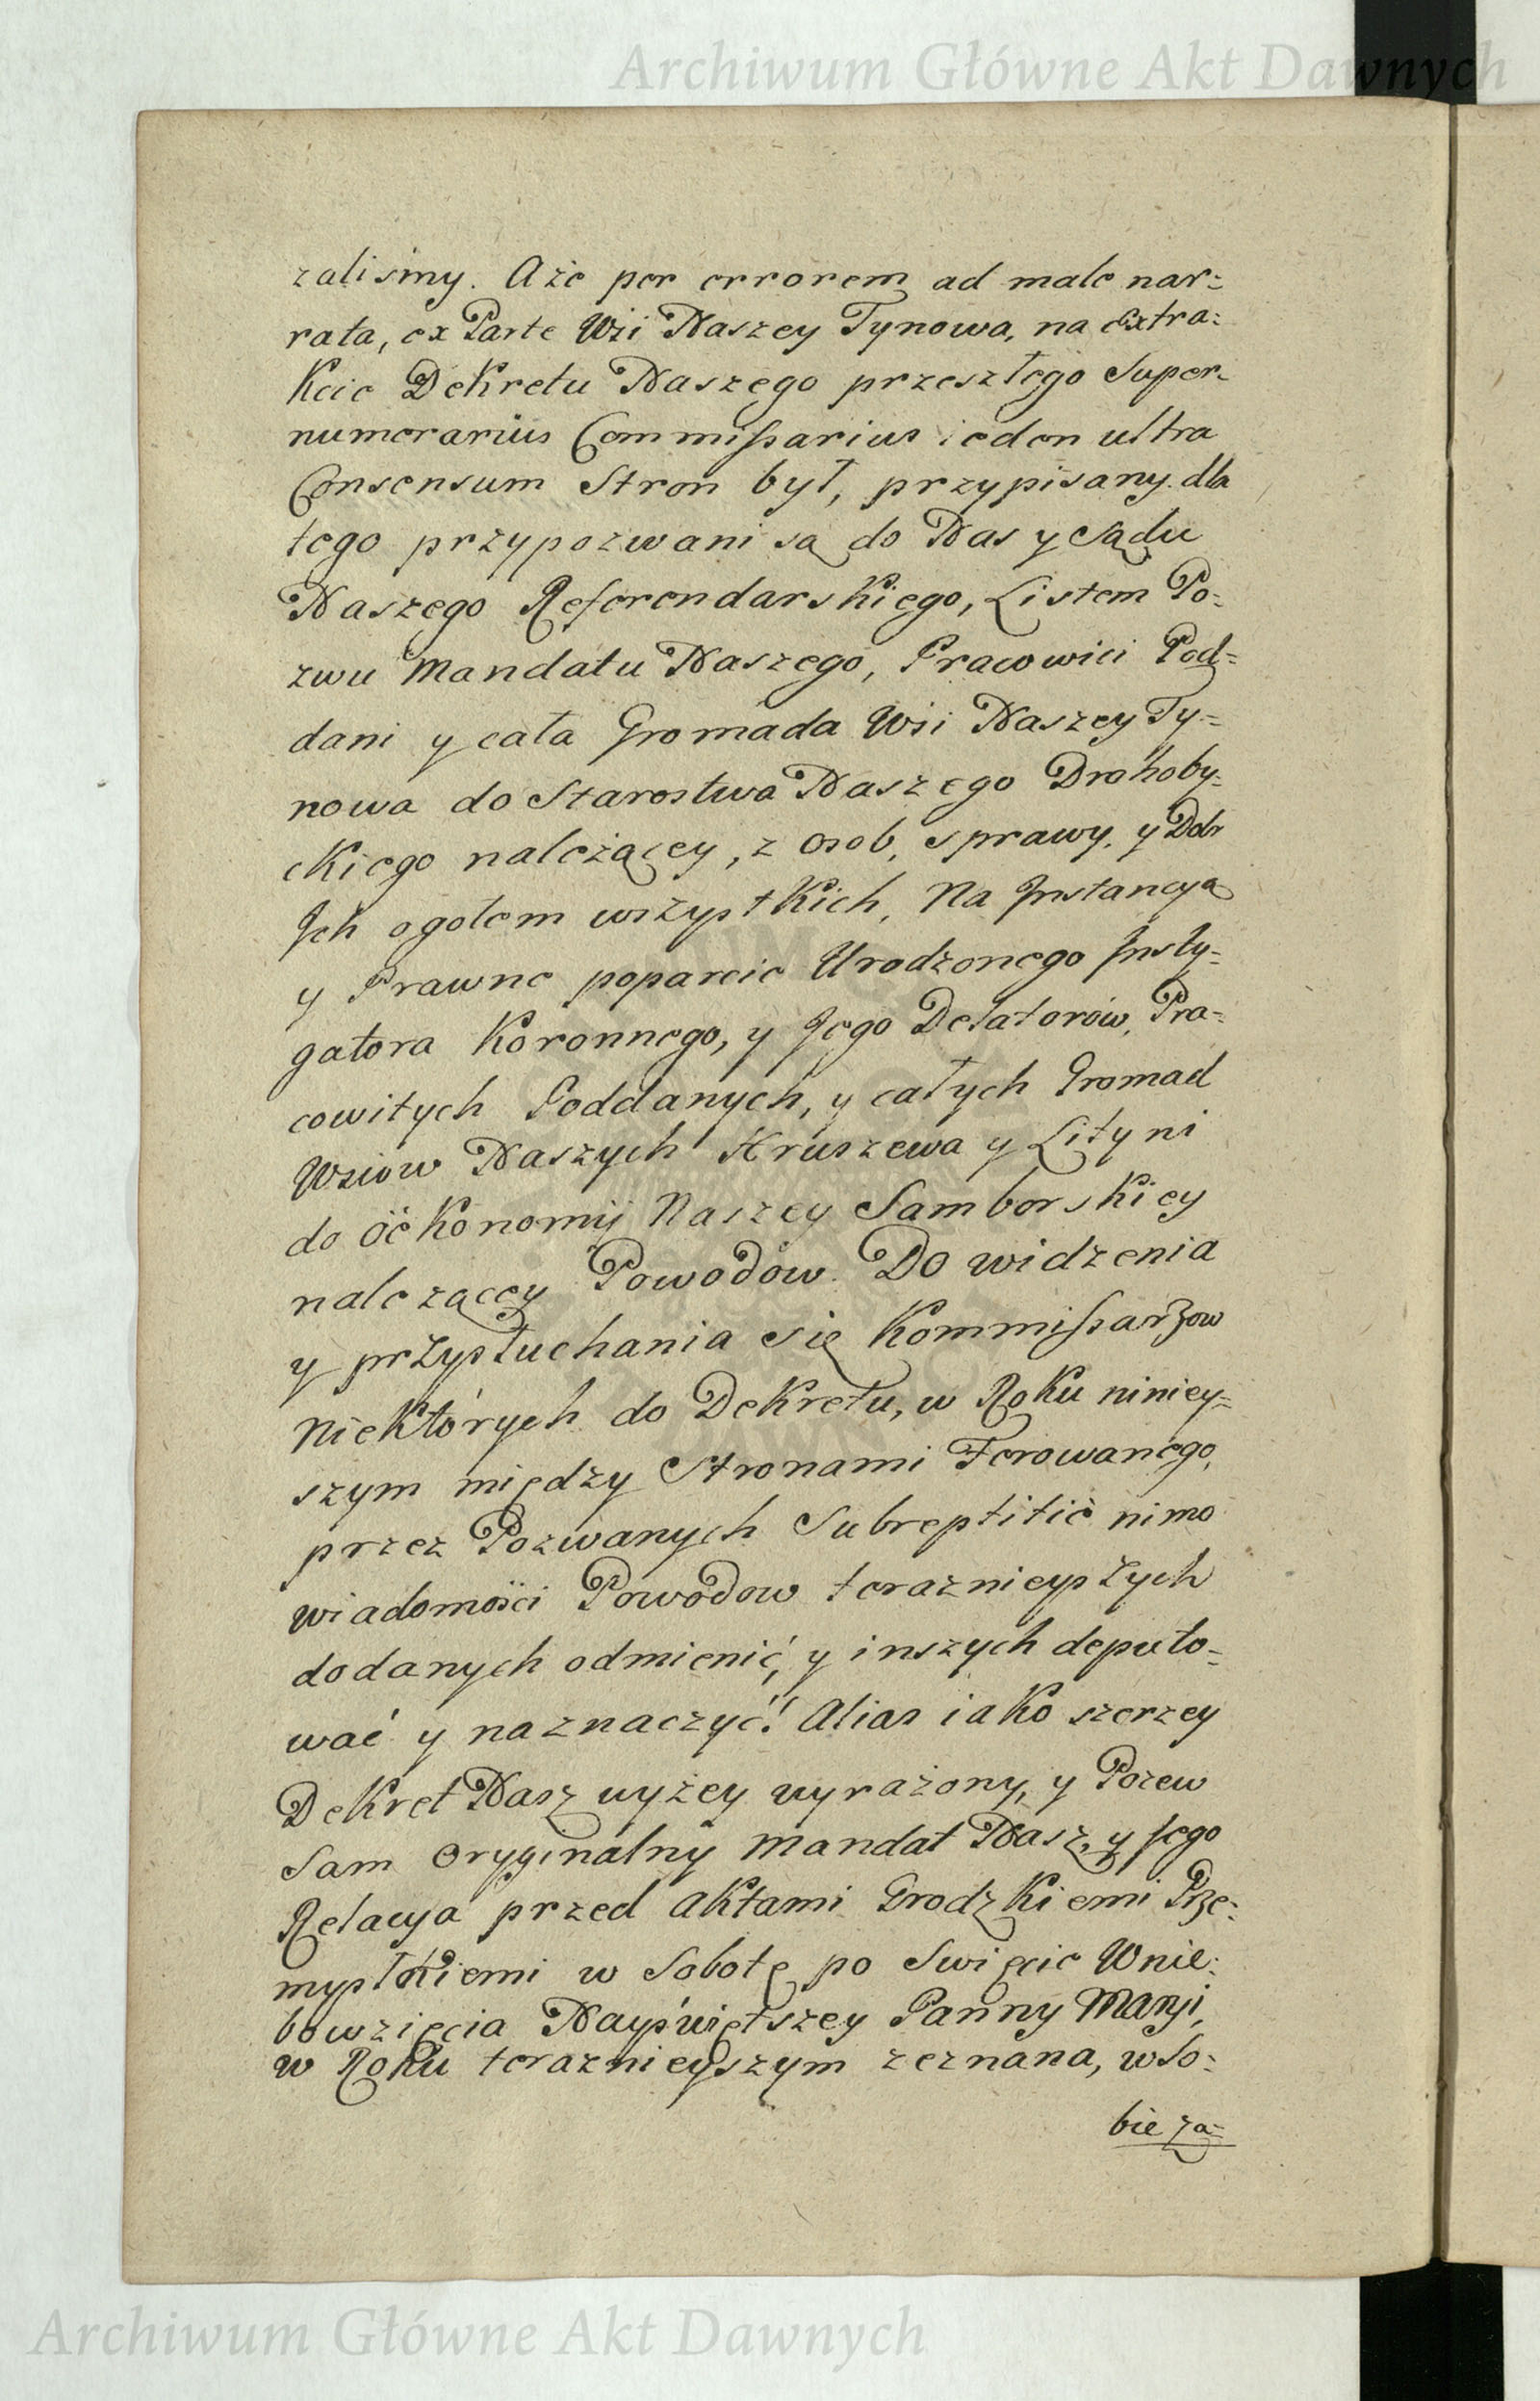 Archiwum Główne Akt Dawnych
zalismy. Aże per errorem ad male nar=
rata, ex Parte Wsi Naszey Tynowa, na Extra=
kcie Dekretu Naszego przeszłego Super=
numerarius Commissarius ieden ultra
Consensum Stron był, przypisany. dla
tego przypozwani są do Nas y Sądu
Naszego Referendarskiego, Listem Po=
zwu Mandatu Naszego, Pracowici Pod=
dani y cała Gromada Wsi Naszey Ty=
nowa do Starostwa Naszego Drohoby=
ckiego należącey, z osob, sprawy, y Dobr
Ich ogołem wszystkich, Na Instancyą
y Prawne poparcie Urodzonego Insty=
gatora Koronnego, y Jego Delatorów, Pra=
cowitych Poddanych, y całych Gromad
Wsiow Naszych Hruszewa y Lityni
do Oekonomij Naszey Samborskiey
należącey Powodów. Do widzenia
y przysłuchania się Kommissarzow
niektórych do Dekretu, w Roku niniey=
szym między Stronami Ferowanego,
przez Pozwanych Subreptitiè nimo
wiadomości Powodow teraznieyszych
dodanych odmienić, y inszych deputo=
wać y naznaczyć! Alias iako szerzey
Dekret Nasz wyżey wyrażony, y Pozew
Sam Oryginalny Mandat Nasz, y Jego
Relacya przed Aktami Grodzkiemi Prze=
myslkiemi w Sobotę po Swięcie Wnie=
bowzięcia Nayświętszey Panny Maryi,
w Roku teraznieyszym zeznana, w So=
bie za=
Archiwum Główne Akt Dawnych